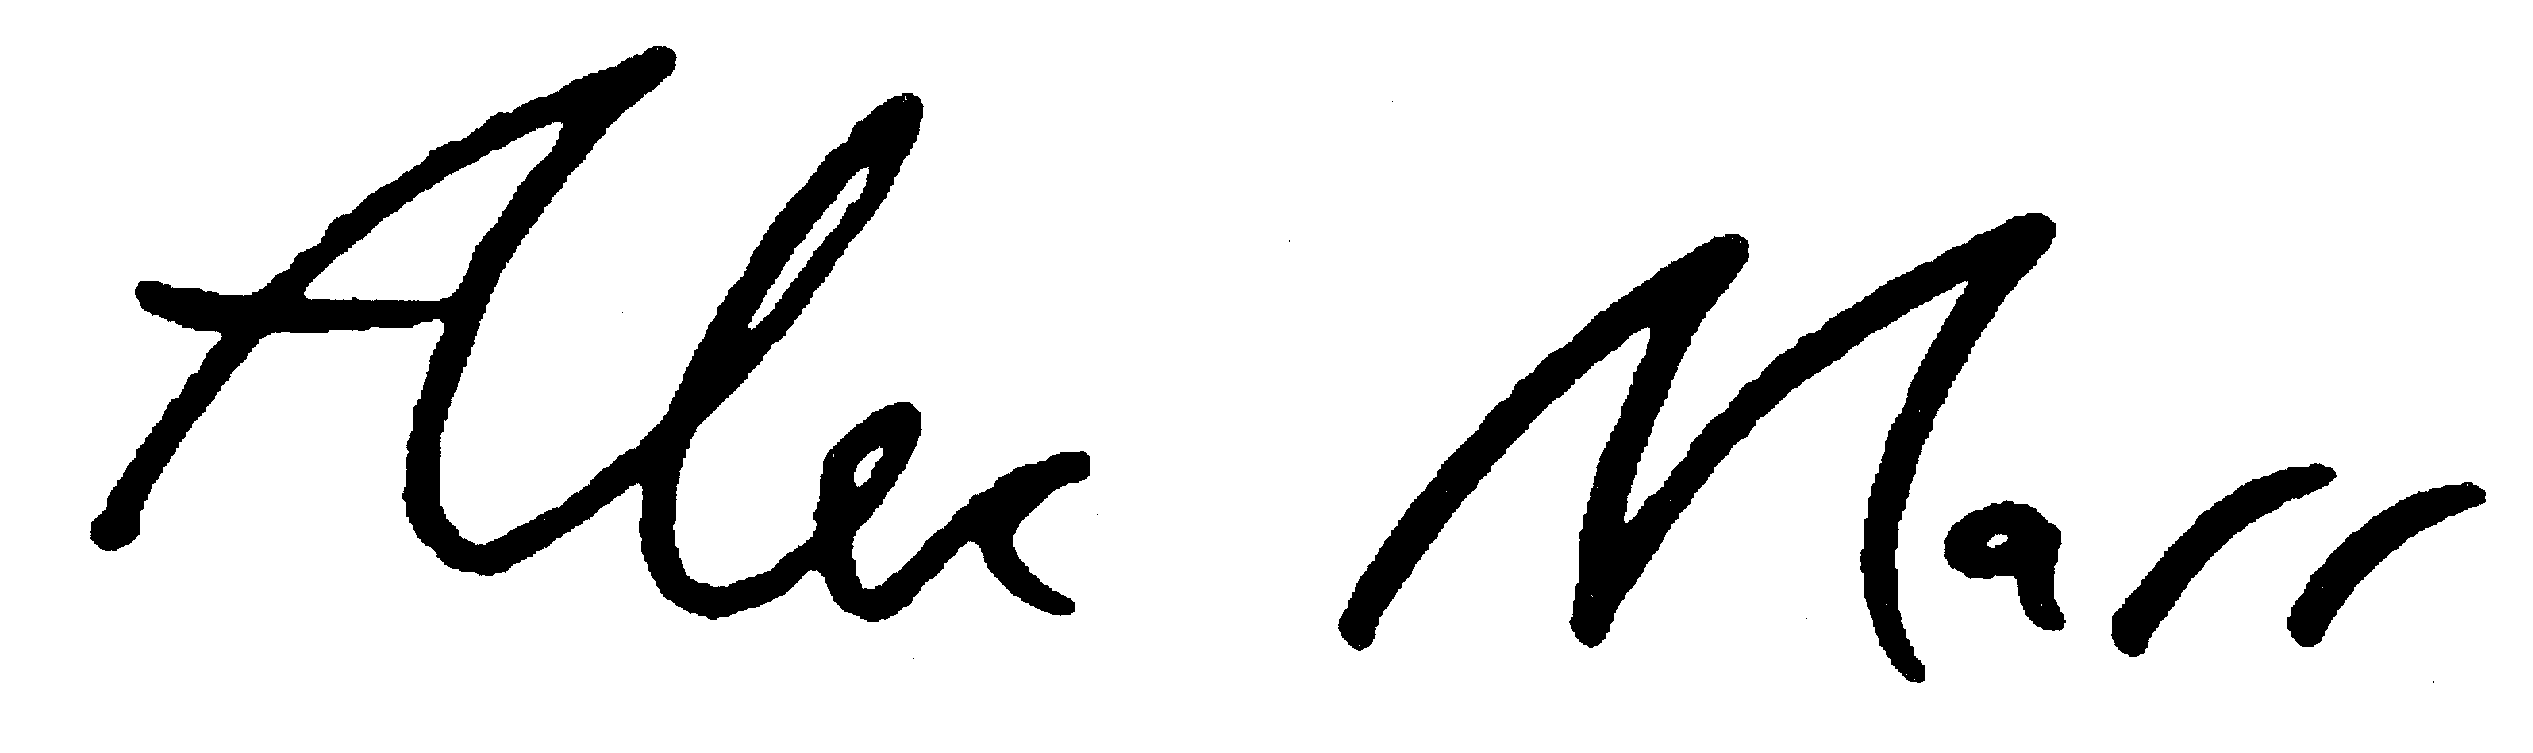 Alec Marr